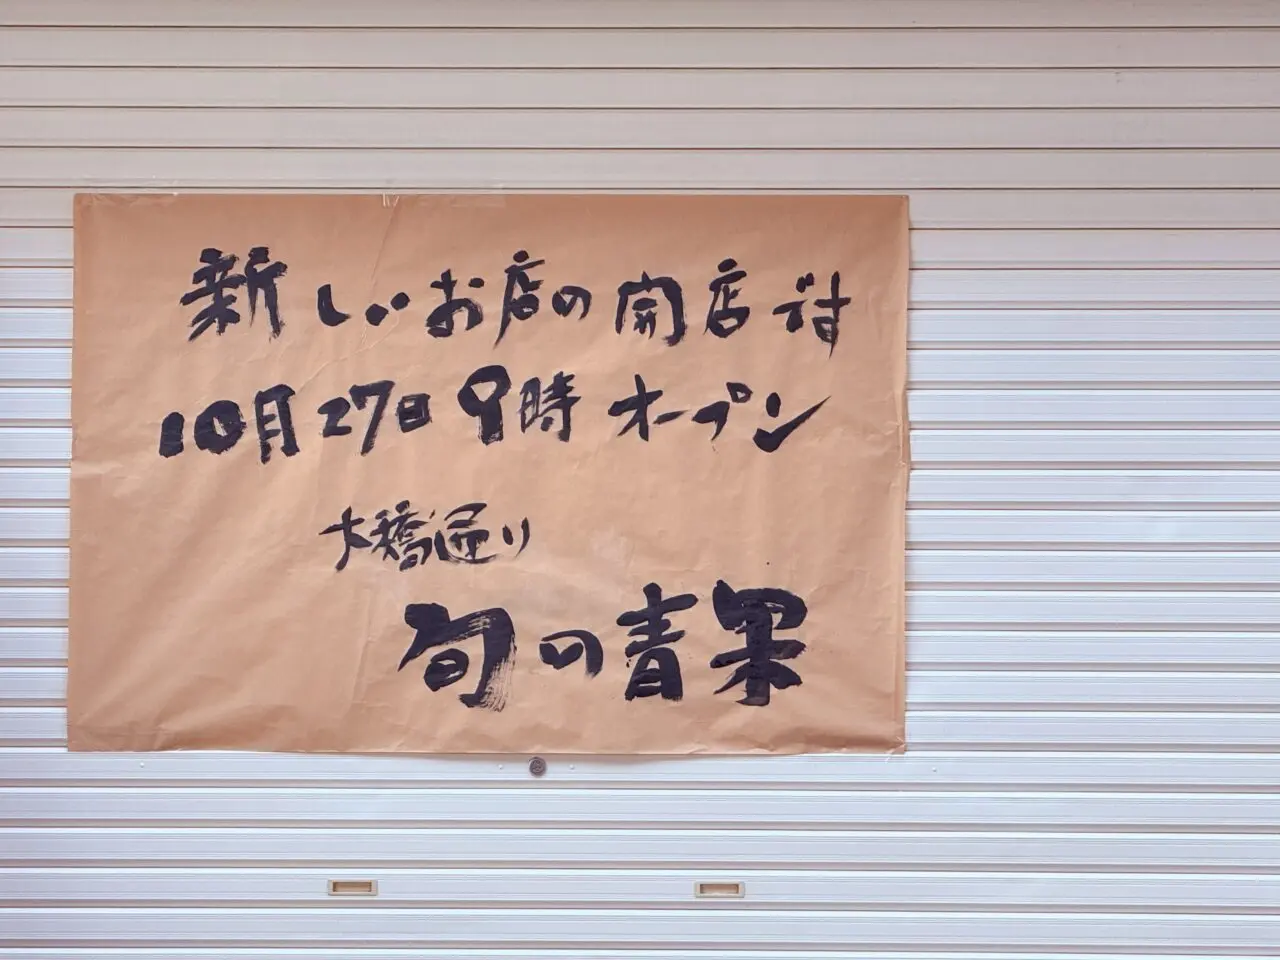 新しいお店の開店です
10月27日9時オープン
大橋通り
旬の青果